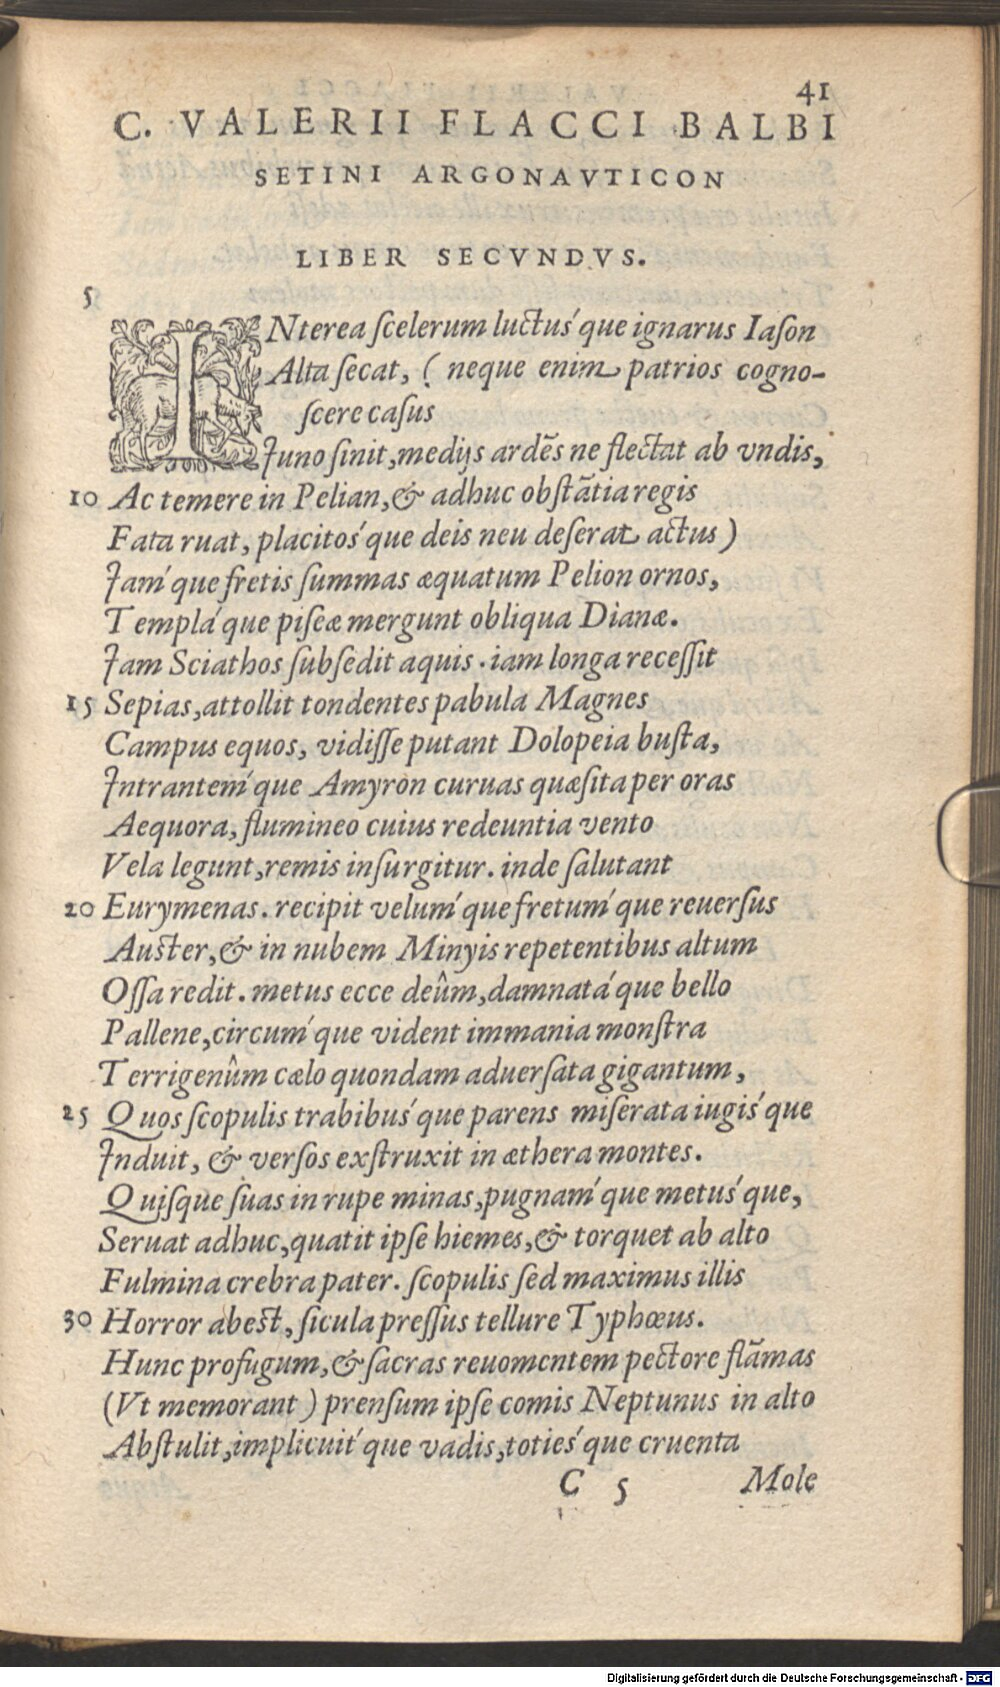 41
C. VALERII FLACCI BALBI
SETINI ARGONAVTICON
LIBER SECVNDVS.
5
INterea ſcelerum luctuś que ignarus Iaſon
Alta ſecat, ( neque enim patrios cogno-
ſcere caſus
Juno ſinit, medijs ardēs ne flectat ab vndis,
10 Ac temere in Pelian, & adhuc obſtātia regis
Fata ruat, placitoś que deis neu deſerat actus )
Jam´que fretis ſummas æquatum Pelion ornos,
Templá que piſeæ mergunt obliqua Dianæ.
Jam Sciathos ſubſedit aquis. iam longa receſſit
15 Sepias, attollit tondentes pabula Magnes
Campus equos, vidiſſe putant Dolopeia buſta,
Intrantem´que Amyron curuas quæſita per oras
Aequora, flumineo cuius redeuntia vento
Vela legunt, remis inſurgitur. inde ſalutant
20 Eurymenas. recipit velum´que fretum´que reuerſus
Auſter, & in nubem Minyis repetentibus altum
Oſſa redit. metus ecce deûm, damnatá que bello
Pallene, circum´que vident immania monſtra
Terrigenûm cælo quondam aduerſata gigantum,
25 Quos ſcopulis trabibuś que parens miſerata iugiś que
Induit, & verſos exſtruxit in æthera montes.
Quiſque ſuas in rupe minas, pugnam´que metuś que,
Seruat adhuc, quatit ipſe hiemes, & torquet ab alto
Fulmina crebra pater. ſcopulis ſed maximus illis
30 Horror abeſt, ſicula preſſus tellure Typhœus.
Hunc profugum, & ſacras reuomentem pectore flāmas
(Vt memorant ) prenſum ipſe comis Neptunus in alto
Abſtulit, implicuit´que vadis, totieś que cruenta
C 5 Mole
Digitalisierung gefördert durch die Deutsche Forschungsgemeinschaft - DFG